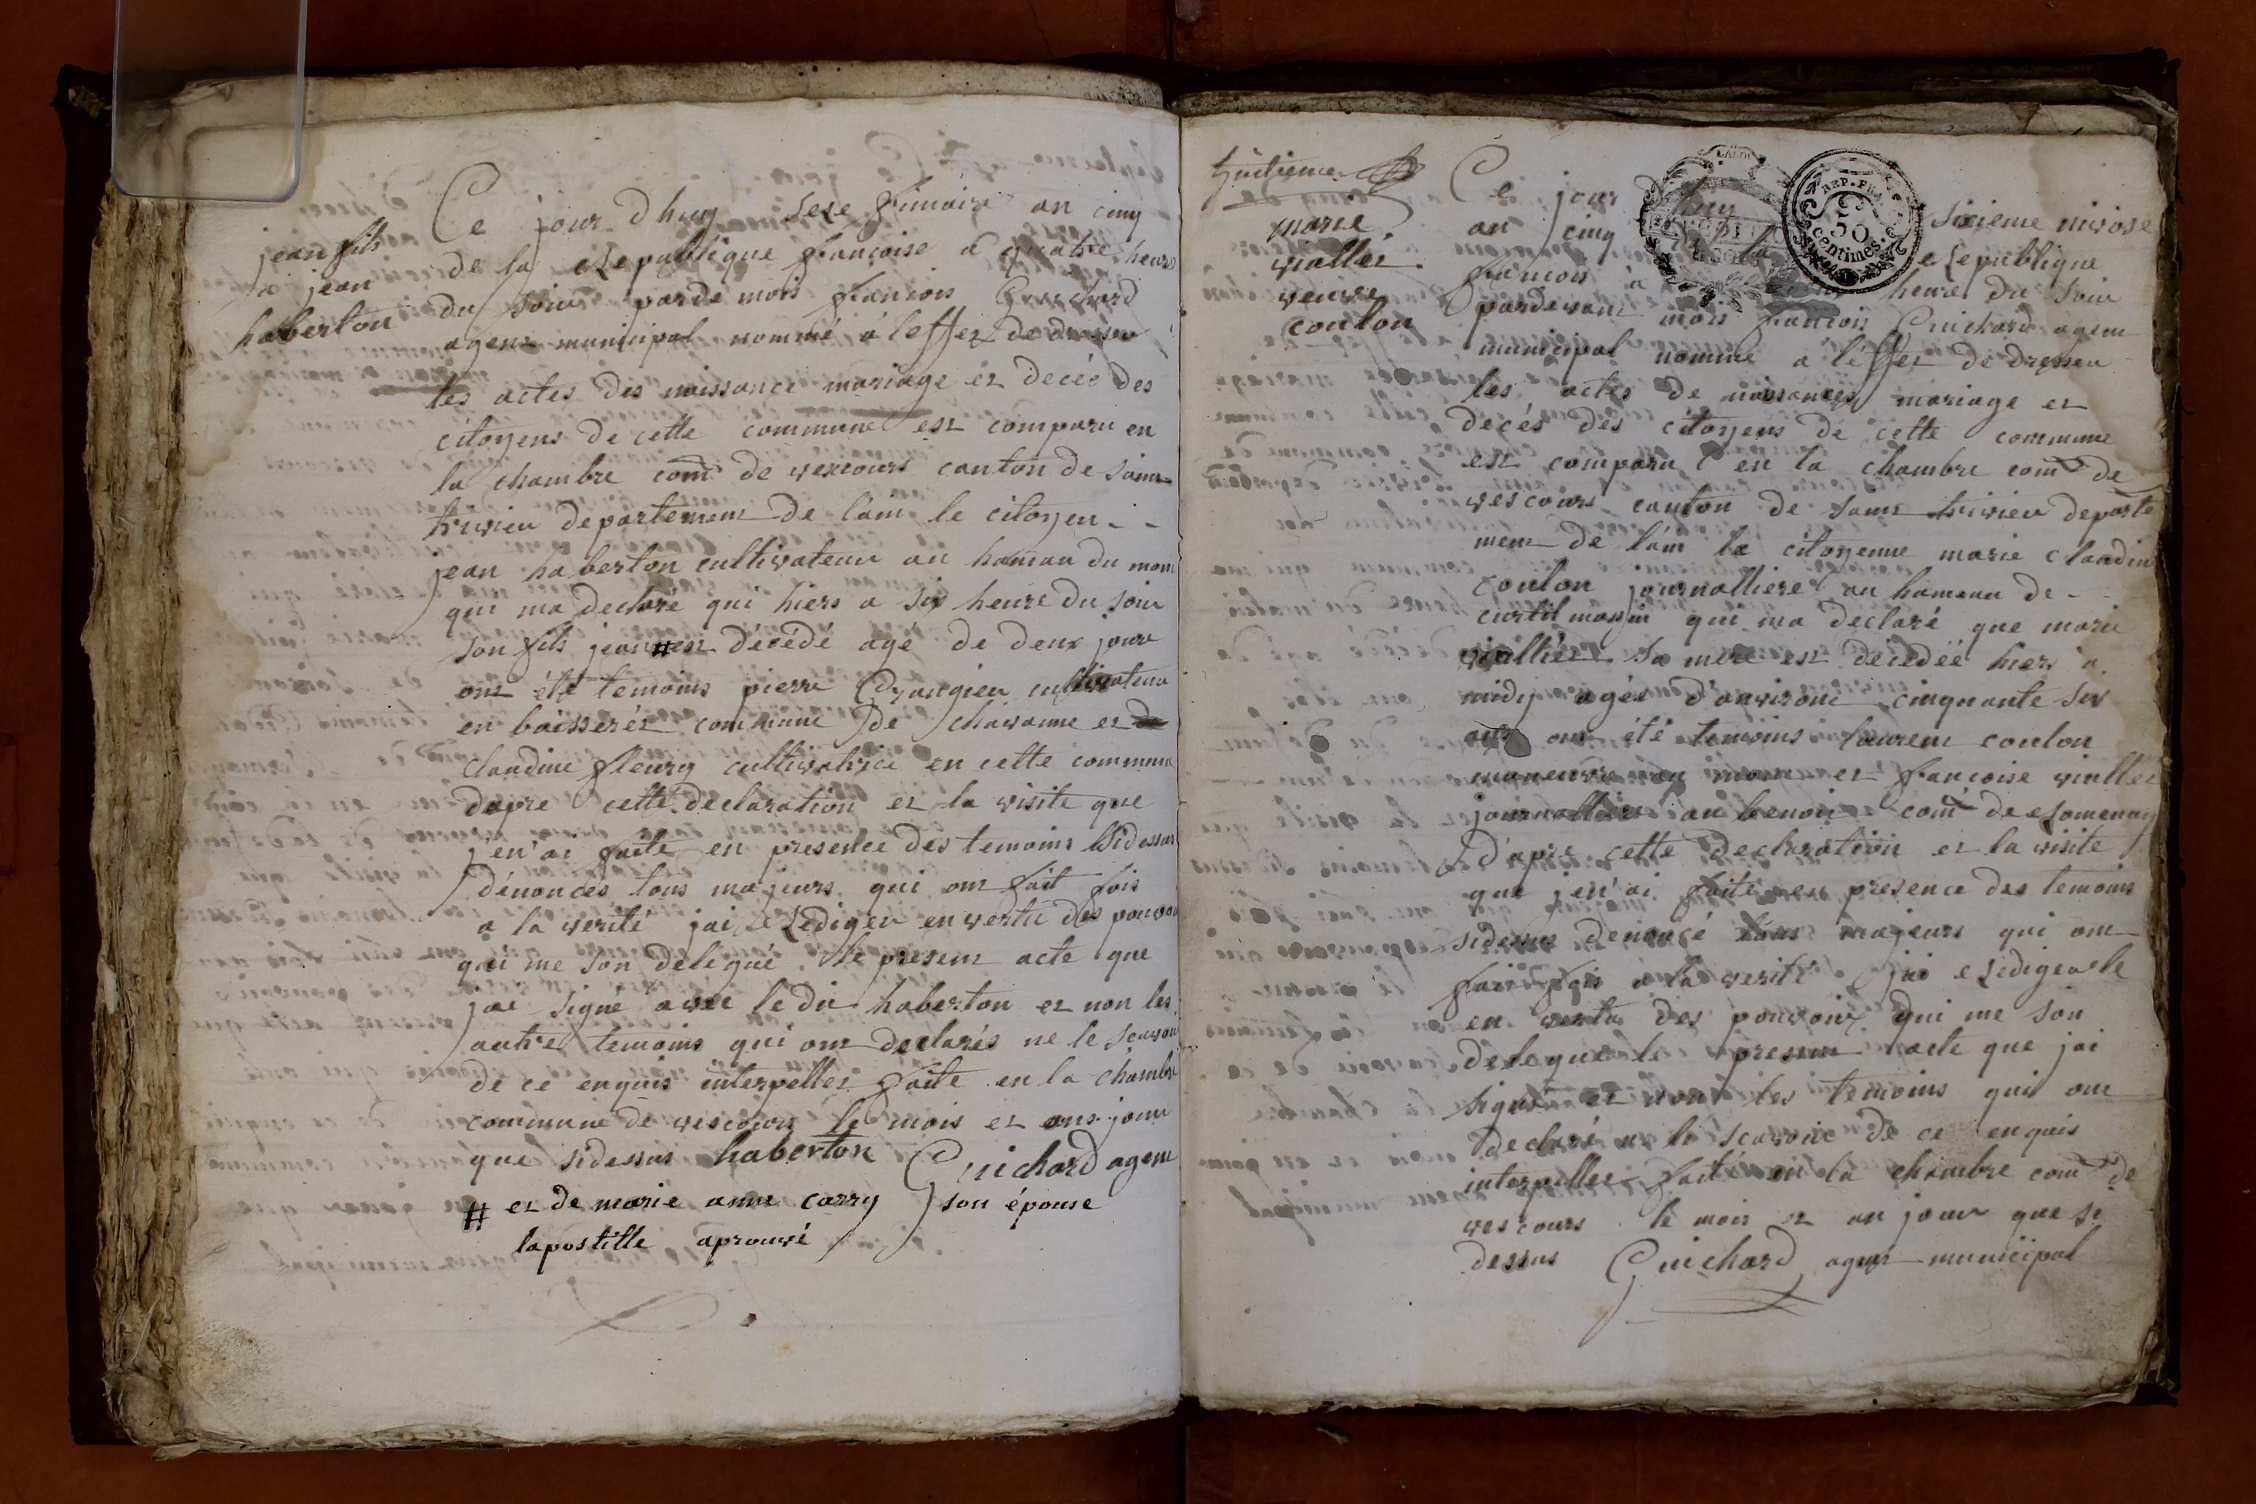 jean fils
a jean
haberton
Ce jour d huy sese frimaire an cinq
de la Republique françoise a quatre heures
du soir parde mois francois Guichard
agent municipal nommé a leffet de dresser
les actes des naissance mariage et decée des
citoyens de cette commune est comparu en
la chambre com de vexcours canton de saint
trivier departement de lain le citoyen - -
jean haberton cultivateur au hamau du mont
qui ma declaré qui hiers a six heure du soir
son fils jean # est décédé agé de deux jours
ont été temoins pierre cultivateur
en baisserér commune de chavanne et
claudine fleury cultivatrice en cette commune
dapre cette declaration et la visite que
j'en'ai faite en presence des temoins sidessus
dénoncés tous majeurs qui ont fait fois
a la verité jai Rediger en vertu des pouvoir
qui me son delégué le present acte que
jai signé avec le dit haberton et non les
autre temoins qui ont declarés ne le scavoir
de ce enquis interpeller faite en la chambre
commune de vescours le mois et ans jour
que sidessus haberton Guichard agent
# et de marie anne carry son épouse
lapostille aprouvé
huitieme
marie
viallet
veuve
coulon
Ce jour d huy sixieme nivose
an cinq de la Republique
francois à heure du soir
pardevant mois francois Guichard agent
municipal nomme a léffet de dresser
les actes de naissances mariage et
decés des citoyens de cette commune
est comparu en la chambre com de
vescours canton de saint trivier departe
ment de lain la citoyenne marie claudine
coulon journalliere au hameau de -
curtil mangin qui ma declaré que marie
viallier sa mere est decedée hiers a
midy agée d'anvironc cinquante six
ans ont été temoins laurent coulon
maneuvre au mont et françoise viallet
journalliere au benoit com de Romenay
d'apre cette declaration et la visite
que j'en'ai faite en presence des temoins
sidessus denoncé tous majeurs qui ont
fait fois a la verité jai Rediger le
en vertu des pouvoir qui me son
delegué le present acte que jai
signé et non les temoins qui ont
declaré ne le scavoir de ce enquis
interpeller fait en la chambre com de
vescours le mois et an jour que si
dessus Guichard agent municipal
REP. FRA
50
centimes.